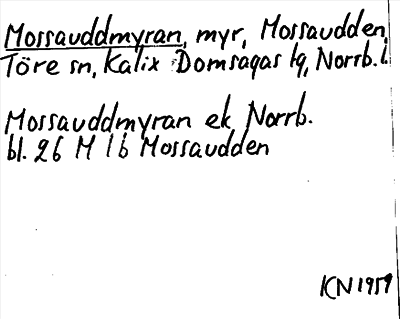 Mossauddmyran, myr, Mossaudden,
Töre sn, Kalix Domsagas tg, Norrb. l.
Mossauddmyran ek, Norrb.
bl. 26 M 1 b Mossaudden
KN 1959